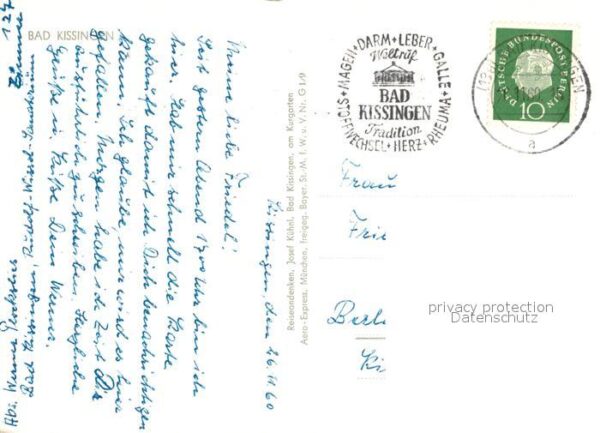 BAD KISSINGEN
Kissingen, den 26.11.60
Meine liebe Friedel!
Seit gestern Abend 17.00 Uhr bin ich
hier. Hab mir schnell die Karte
gekauft damit ich Dich benachrichtigen
kann. Ich glaube, mir wird es hier
gefallen. Morgen habe ich Zeit Dir
ausführlich zu schreiben. Herzliche
Grüße u. Küße Dein Werner.
Abs. Werner
Bad Kissingen, Rudolf-Wissel-Sanatorium
Zimmer 127
Reiseandenken, Josef Kühnl, Bad Kissingen, am Kurgarten
Aero-Express, München, Freigeg. Bayer. St. M. f. W. u. V. Nr. G 1/9
MAGEN • DARM • LEBER • GALLE • RHEUMA • HERZ • STOFFWECHSEL
Weltruf
BAD
KISSINGEN
Tradition
BAD KISSINGEN
60
a
DEUTSCHE BUNDESPOST BERLIN
10
Frau
Frie
Berl
Ki
privacy protection
Datenschutz